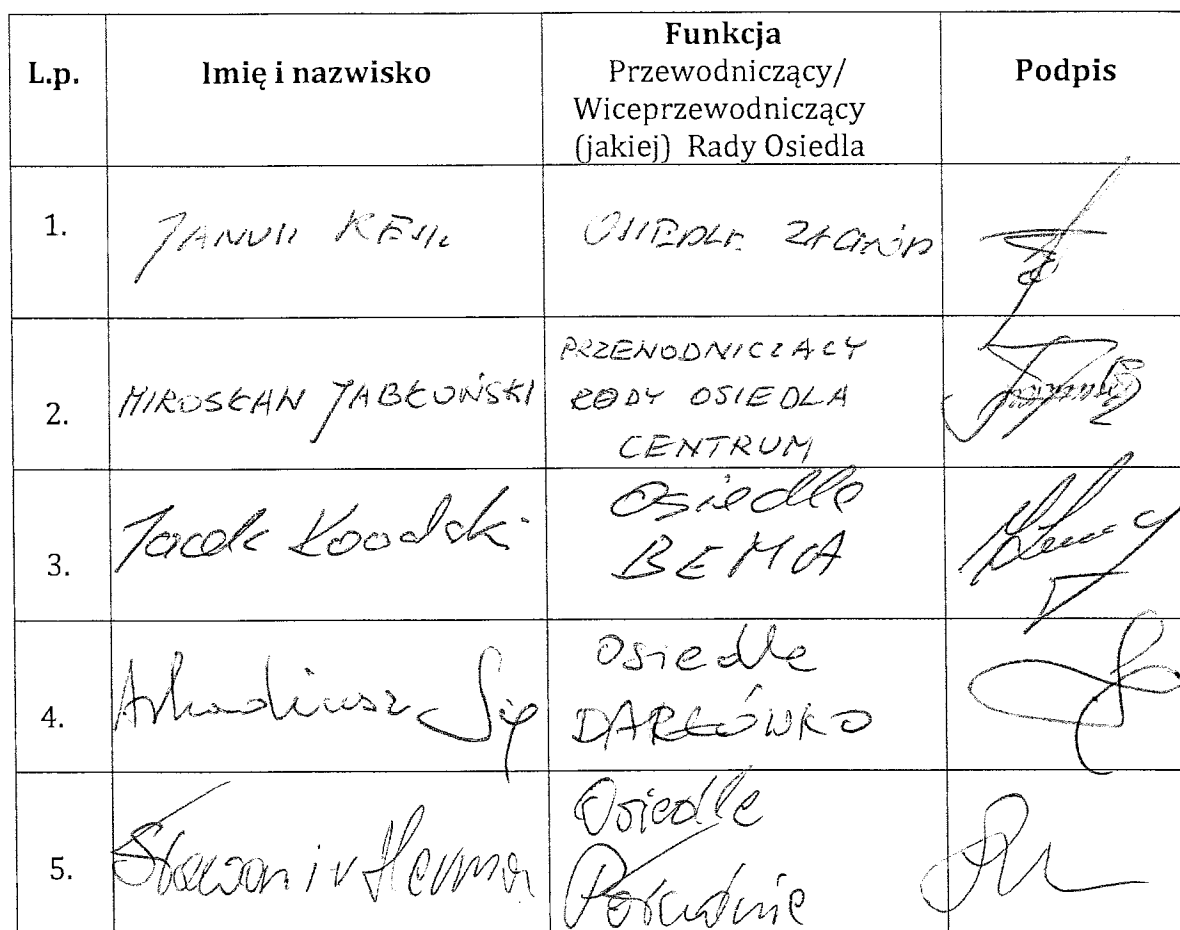 L.p.
Imię i nazwisko
Funkcja
Przewodniczący/
Wiceprzewodniczący
(jakiej) Rady Osiedla
Podpis
1.
JANUSZ
OSIEDLE ZACHÓD
2.
MIROSŁAW JABŁOŃSKI
PRZEWODNICZACY
RADY OSIEDLA
CENTRUM
3.
Jacek
Osiedle
BEMA
4.
Arkadiusz Sip
Osiedle
DARŁÓWKO
5.
Sławomir
Osiedle
Południe